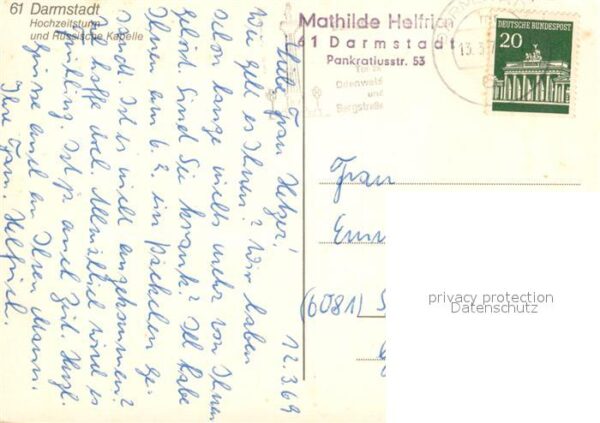 61 Darmstadt
Hochzeitsturm
und Russische Kapelle
Mathilde Helfrich
61 Darmstadt
Pankratiusstr. 53
Tor zu
Odenwald
und
Bergstraße
13.3.
DEUTSCHE BUNDESPOST
20
12.3.69
Liebe Frau Hetzer!
Wie geht es Ihnen? Wir haben
schon lange nichts mehr von Ihnen
gehört. Sind Sie krank? Ich habe
Ihnen am 6.2. ein Päckchen ge-
sandt. Ist es nicht angekommen?
Ich hoffe doch. Allmählich wird es
Frühling. Ist ja auch Zeit. Herzl.
Grüsse auch an Ihren Mann.
Ihre Fam. Helfrich.
Frau
(6081)
privacy protection
Datenschutz